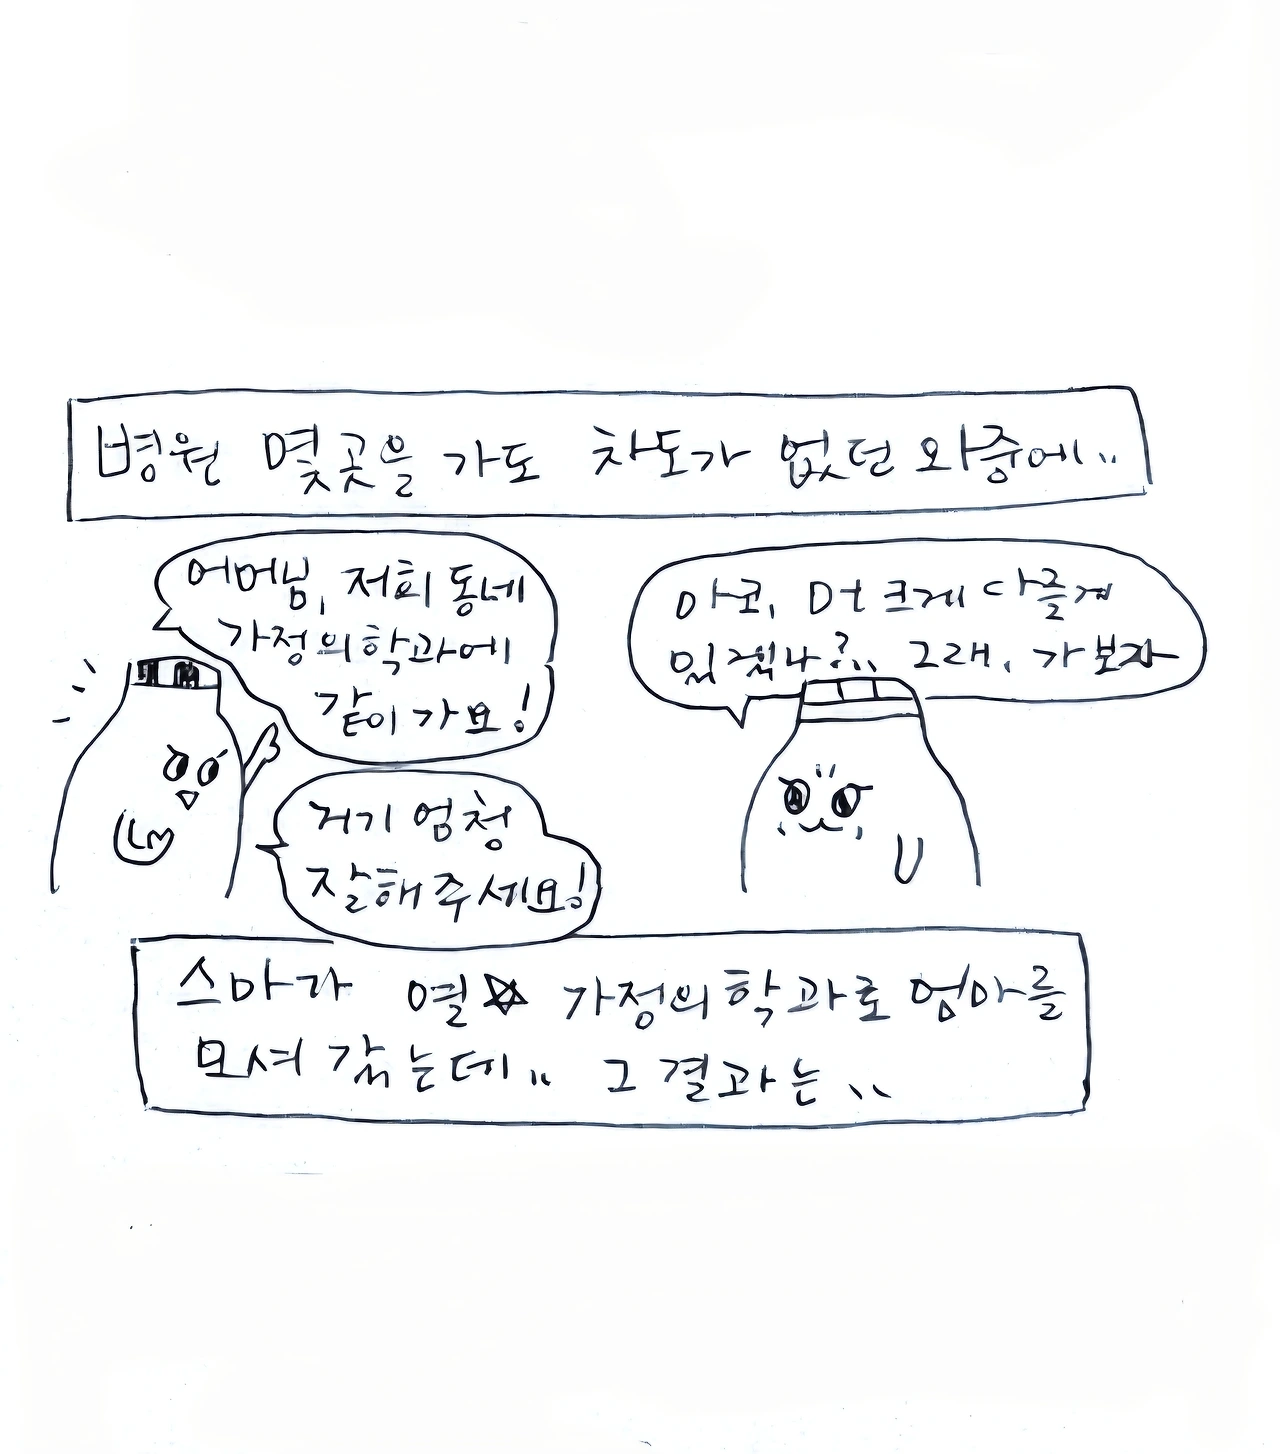 병원 몇곳을 가도 차도가 없던 와중에..
어머님, 저희 동네
가정의학과에
같이 가요!
아코, 머 크게 다를게
있겠나?.. 그래, 가보자
거기 엄청
잘해주세요!
스마가 열☆ 가정의학과로 엄마를
모셔 갔는데.. 그 결과는..